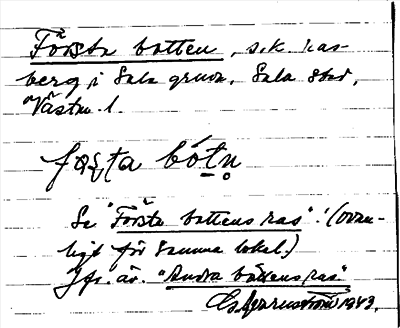 Första botten, s.k. kas-
berg i Sala gruva. Sala stad,
Västm. l.
fœṣta bótṇ
Se "Första bottens ras"! (Ovan-
ligt för samma lokal.)
Jfr. äv. "Andra bottens ras"
1943.